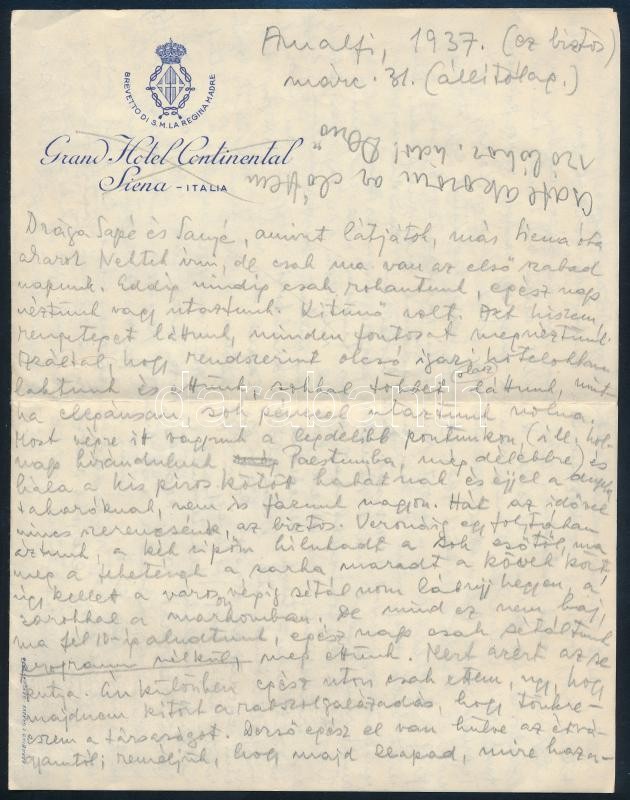 Amalfi, 1937. (ez biztos)
márc. 31. (állítólag.)
BREVETTO DI S.M. LA REGINA MADRE
Grand Hotel Continental
Siena - ITALIA
Csak akarom az előttem
"Dуно"
Drága Sapé és Sanyé, amint látjátok, már Siena óta
akarok Nektek írni, de csak ma van az első szabad
napunk. Eddig mindig csak rohantunk, egész nap
néztünk vagy utaztunk. Kitünő volt. Azt hiszem,
rengeteget láttunk, minden fontosat megnéztünk.
Azáltal, hogy rendszerint olcsó igazi olasz hotelokban
laktunk és ettünk, sokkal többet láttunk, mint
ha elegánsan, sok pénzzel utaztunk volna.
Most végre itt vagyunk a legdélibb pontunkon, (ill. hol-
nap kirándulunk Paestumba, még délebbre) és
hála a kis piros kötött kabátnak és éjjel a
takaróknak, nem is fázunk nagyon. Hát az idővel
nincs szerencsénk, az biztos. Veronáig egyfolytában
áztunk, a kék cipőm kilukadt a sok esőtől, ma
meg a fehérnek a sarka maradt a kövek közt
úgy kellett a város végig sétálnom lábujjhegyen, a
sarokkal a markomban. De mind ez nem baj,
ma fél 10-ig aludtunk, egész nap csak sétáltunk
program nélkül, meg ettünk. Mert azért az se
kutya. Én különben egész úton csak ettem, úgy, hogy
majdnem kitört a rabszolgalázadás, hogy tönkre-
eszem a társaságot. Dorsó egész el van hülve az étvá-
gyamtól; reméljük, hogy majd lecsapad, mire haza-
darabanth